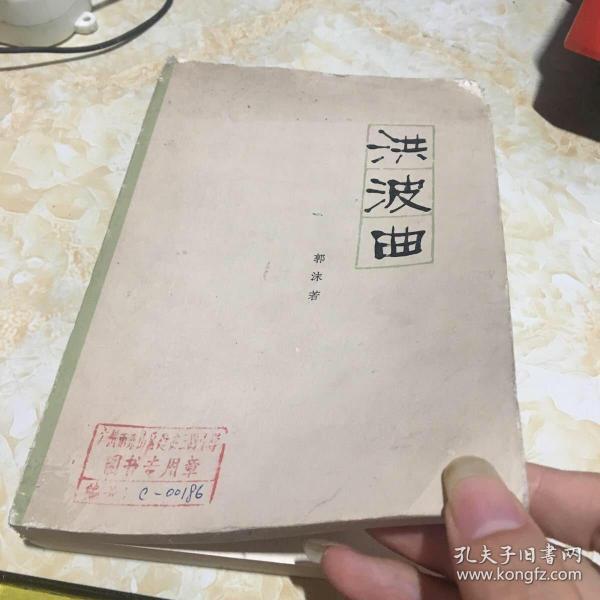 洪波曲
郭沫著
图书专用章
C-00186
孔夫子旧书网
www.kongfz.com